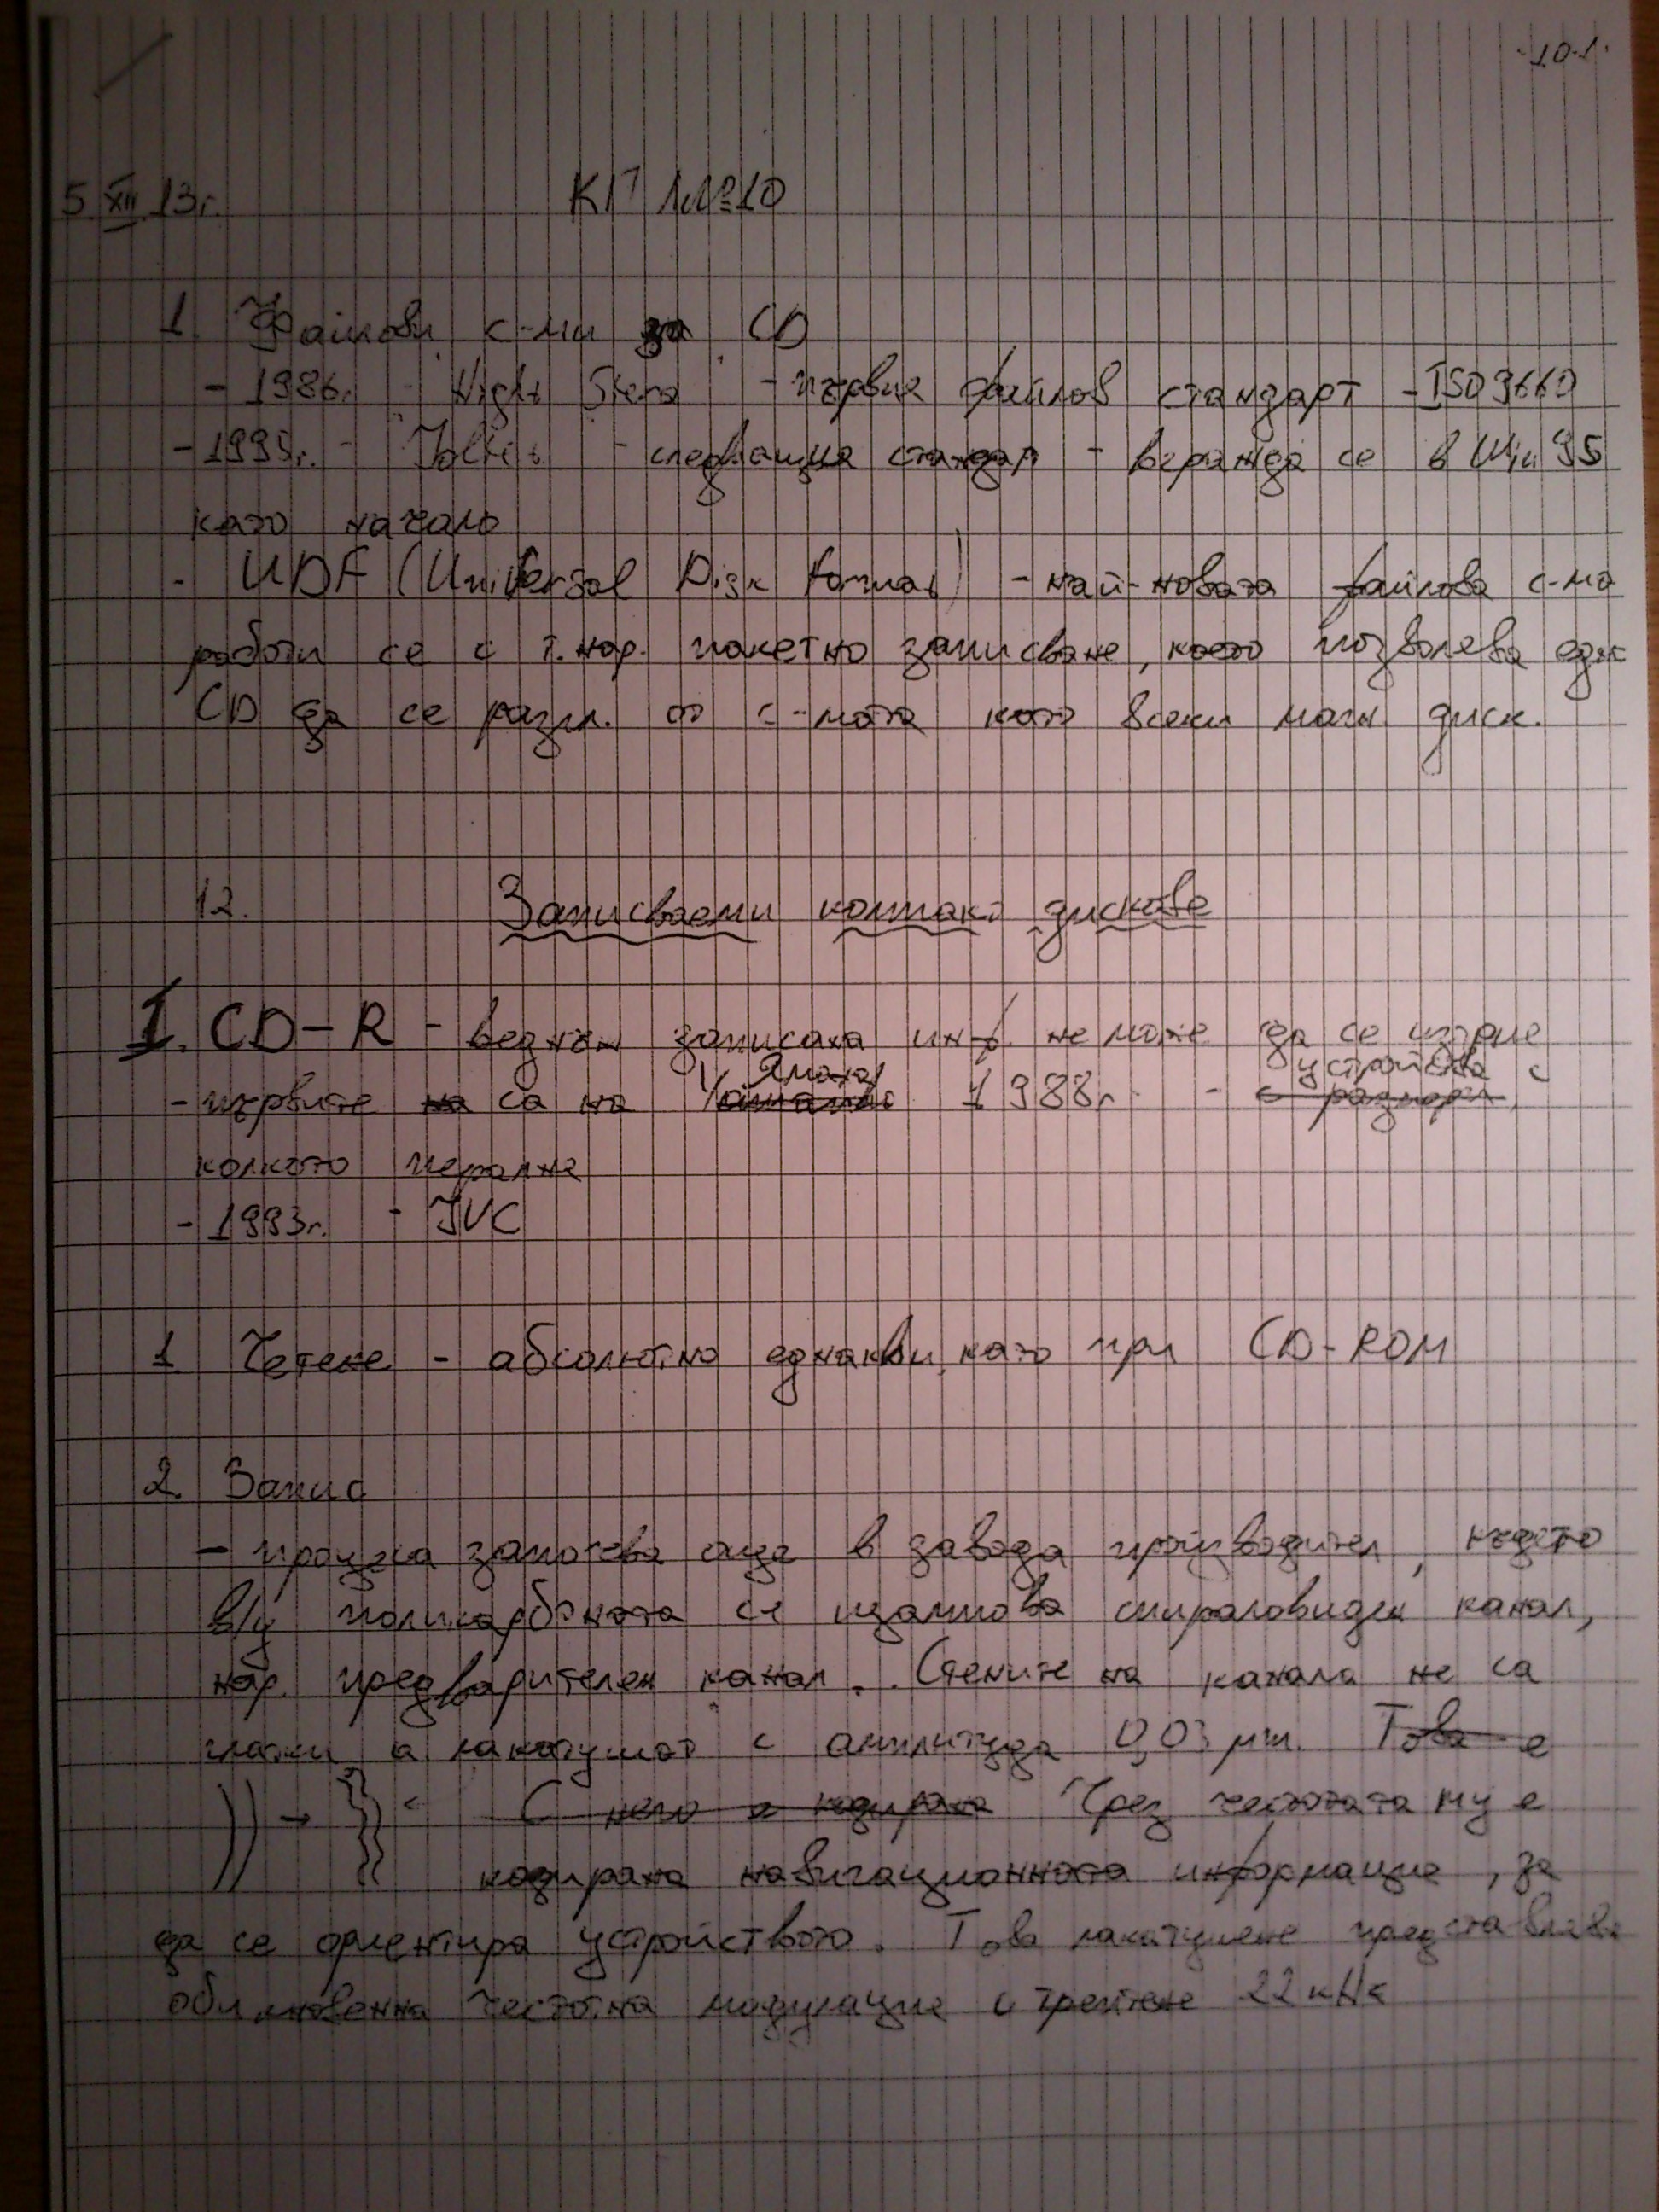 10.1.
5 XII 13г. КП №10
1. Файлови с-ми за CD
- 1986г. - "High Siera" - първия файлов стандарт - ISO 9660
- 1995г. - Joliet - следващия стандарт - вгражда се в Win 95
като начало
- UDF (Universal Disk format) - най-новата файлова с-ма
работи се с т.нар. пакетно записване, което позволява един
CD да се разгл. от с-мата като всеки магн. диск.
12. Записваеми компакт дискове
I. CD-R - веднъж записана инф. не може да се изтрие
Ямаха устройства с
- първите на са на 1988г. - с размери,
колкото пералня
- 1993г. - JVC
1. Четене - абсолютно еднакви, като при CD-ROM
2. Запис
- процеса започва още в завода производител, където
в/у поликарбоната се щампова спираловиден канал,
нар. предварителен канал. Стените на канала не са
гладки а лакатушат с амплитуда 0,03 µm. Това е
С него е кодирана Чрез честотата му е
кодирана навигационната информация, за
да се ориентира устройството. Това лакатушене представлява
обикновенна честотна модулация с трептене 22 kHz